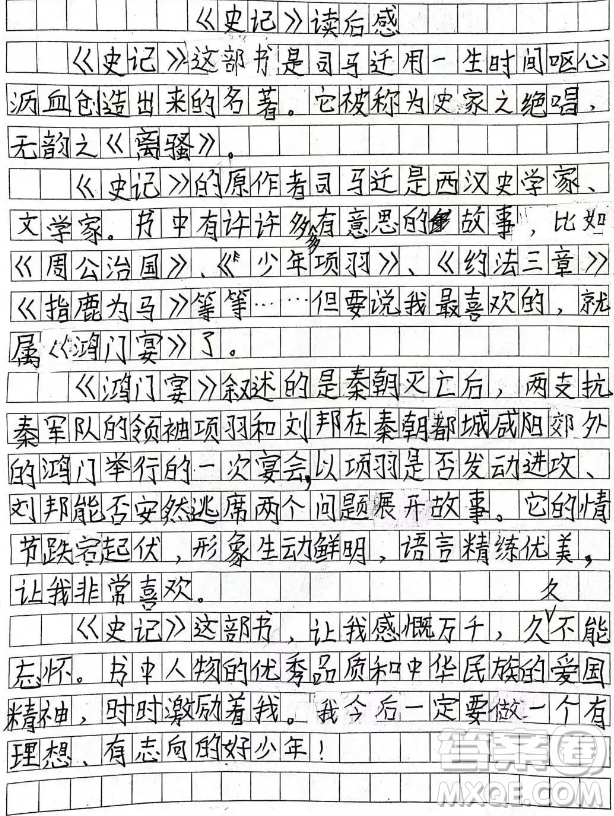 《史记》读后感
《史记》这部书是司马迁用一生时间呕心
沥血创造出来的名著。它被称为史家之绝唱，
无韵之《离骚》。
《史记》的原作者司马迁是西汉史学家、
文学家。书中有许许多多有意思的故事，比如
《周公治国》、《少年项羽》、《约法三章》
《指鹿为马》等等……但要说我最喜欢的，就
属《鸿门宴》了。
《鸿门宴》叙述的是秦朝灭亡后，两支抗
秦军队的领袖项羽和刘邦在秦朝都城咸阳郊外
的鸿门举行的一次宴会，以项羽是否发动进攻、
刘邦能否安然逃席两个问题展开故事。它的情
节跌宕起伏，形象生动鲜明，语言精练优美，
让我非常喜欢。
《史记》这部书，让我感慨万千，久久不能
忘怀。书中人物的优秀品质和中华民族的爱国
精神，时时激励着我。我今后一定要做一个有
理想、有志向的好少年！
答案圈
MXQE.COM